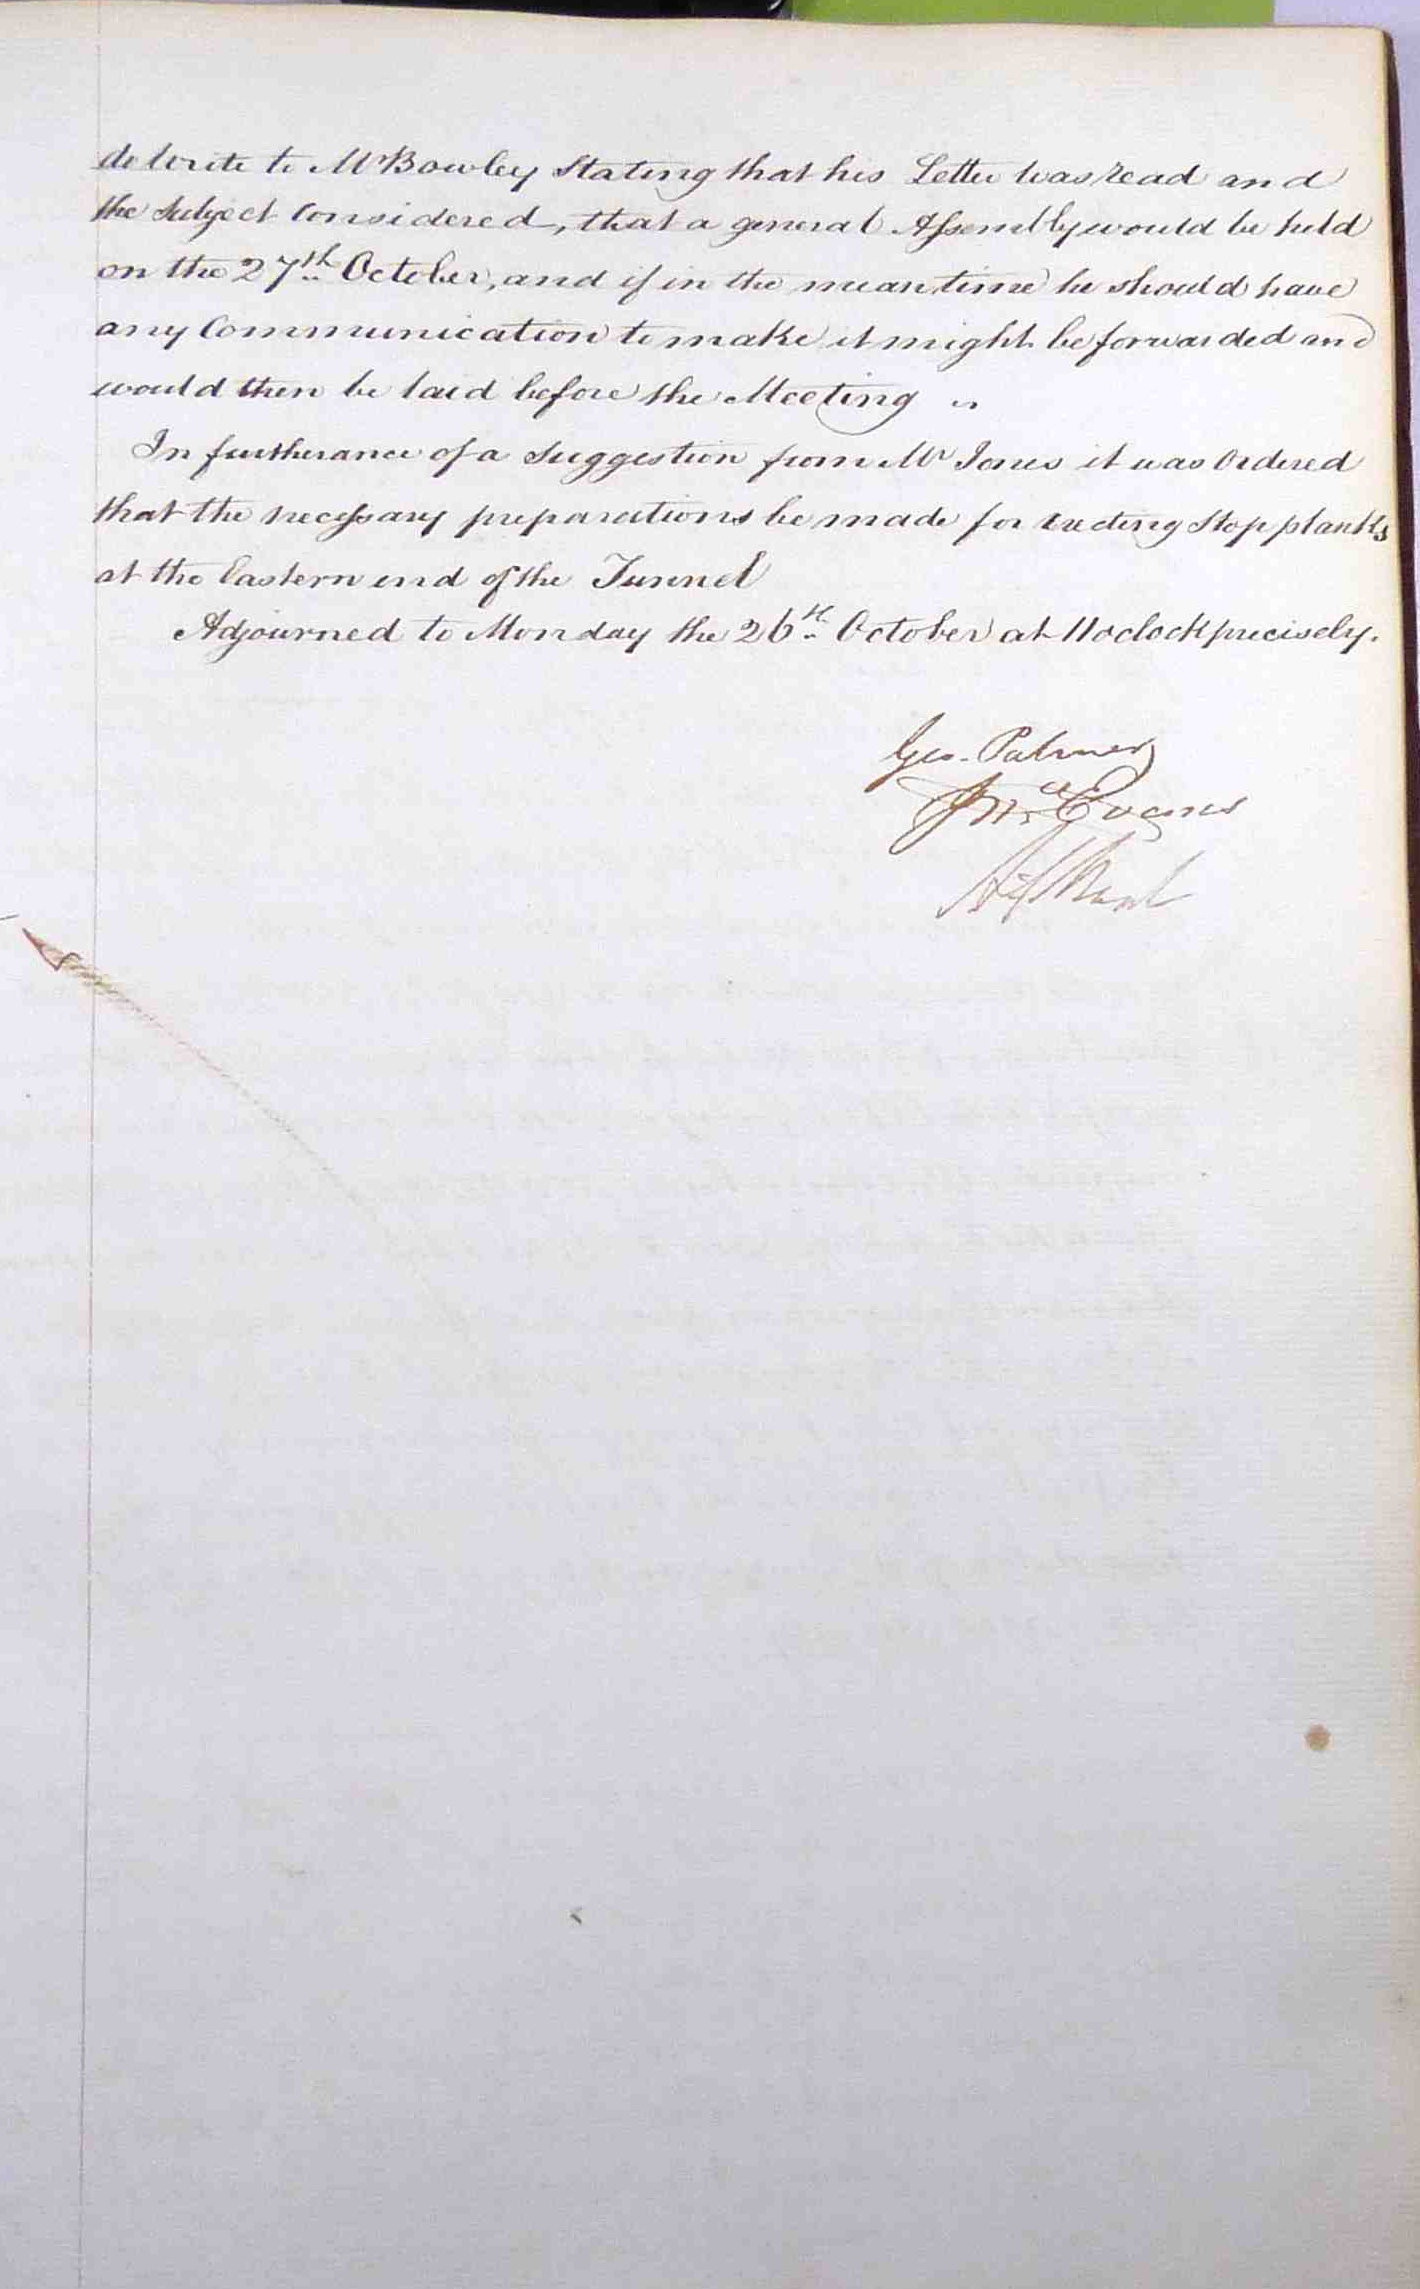 do write to Mr Bowley Stating that his Letter was read and
the Subject Considered, that a general Assembly would be held
on the 27th October, and if in the mean time he should have
any Communication to make it might be forwarded and
would then be laid before the Meeting
In furtherance of a Suggestion from Mr Jones it was Ordered
that the necessary preparations be made for Erecting Stop planks
at the Eastern end of the Tunnel
Adjourned to Monday the 26th October at 11 oclock precisely.
Geo. Palmer
Evans